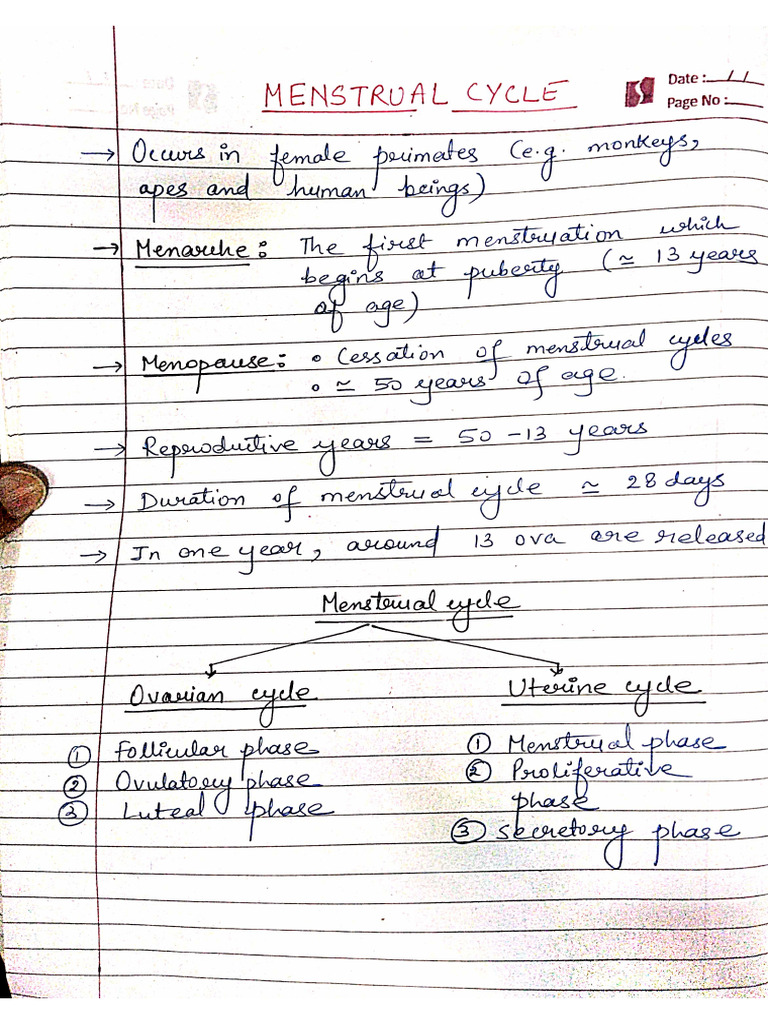 MENSTRUAL CYCLE
Date: / /
Page No:
→ Occurs in female primates (e.g. monkeys,
apes and human beings)
→ Menarche: The first menstruation which
begins at puberty (≃ 13 years
of age)
→ Menopause: ∘ Cessation of menstrual cycles
∘ ≃ 50 years of age.
→ Reproductive years = 50 - 13 years
→ Duration of menstrual cycle ≃ 28 days
→ In one year, around 13 ova are released
Menstrual cycle
Ovarian cycle Uterine cycle
① Follicular phase ① Menstrual phase
② Ovulatory phase ② Proliferative
phase
③ Luteal phase ③ Secretory phase